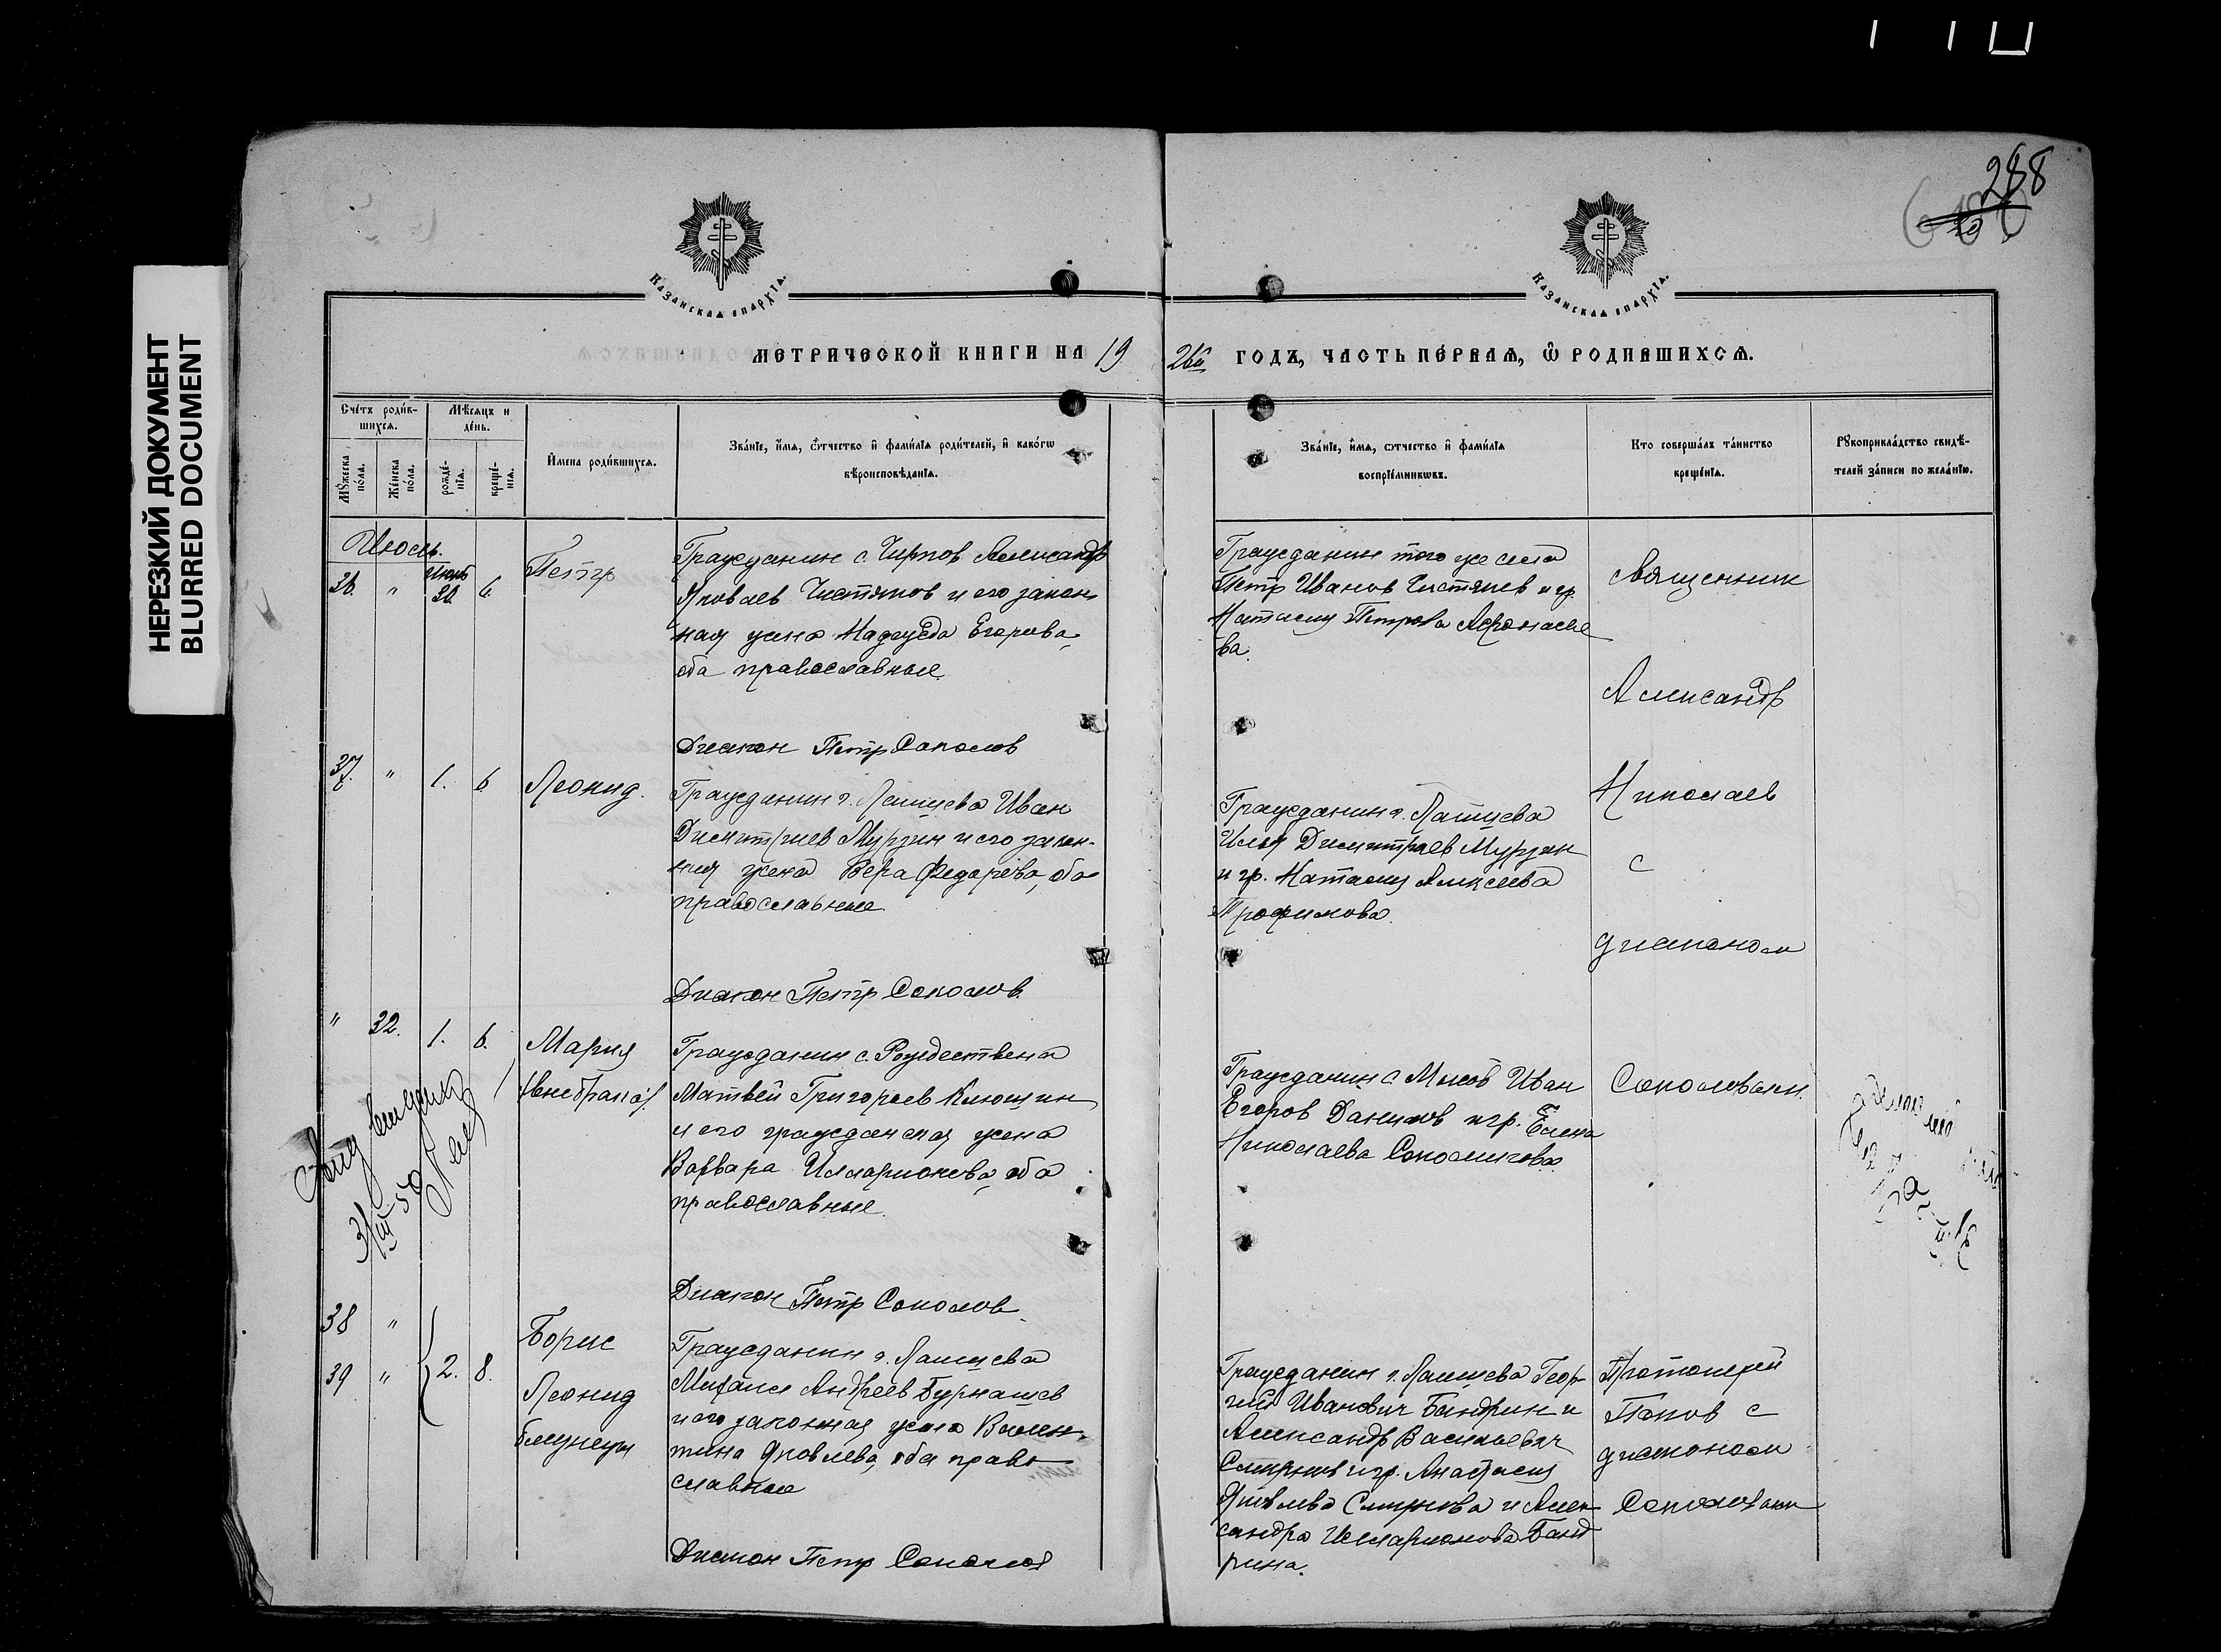 НЕРЕЗКИЙ ДОКУМЕНТ
BLURRED DOCUMENT
288
КАЗАНСКАѦ ЕПАРХІА.
КАЗАНСКАѦ ЕПАРХІА.
МЕТРИЧЕСКОЙ КНИГИ НА 19 26й ГОДЪ, ЧАСТЬ ПЕ́РВАѦ, Ѽ РОДИВШИХСѦ.
Сче́тъ роди́в-
шихсѧ.
Мѣ́сѧцъ и
де́нь.
Мꙋ́жеска
по́ла.
Же́нска
по́ла.
рожде́-
нїѧ.
креще́-
нїѧ.
И҆мена роди́вшихсѧ.
Зва́нїе, и҆́мѧ, ѻ҆́тчество и҆ фами́лїѧ роди́телей, и҆ како́гѡ
вѣроисповѣ́данїѧ.
Зва́нїе, и҆́мѧ, ѻ҆́тчество и҆ фами́лїѧ
воспрїе́мникѡвъ.
Кто соверша́лъ та́инство
креще́нїѧ.
Рꙋкоприкла́дство свидѣ́-
телей за́писи по жела́нїю.
Июль.
36. " Июнь 30. 6. Петр
Гражданин с. Чирпов Александр
Яковлев Чистяков и его закон-
ная жена Надежда Егорова,
оба православные.
Диакон Петр Соколов
Гражданин того же села
Петр Иванов Чистяков и гр.
Наталия Петрова Афонасье
ва.
Священник
Александр
Николаев
с
диаконом
Соколовым.
37. " 1. 6. Леонид.
Гражданин г. Лаишева Иван
Димитриев Мурзин и его закон-
ная жена Вера Федорова, оба
православные.
Диакон Петр Соколов.
Гражданин г. Лаишева
Илья Димитриев Мурзин
и гр. Наталия Алексеева
Трофимова.
" 32. 1. 6. Мария
(внебрачн.)
Гражданин с. Рождествена
Матвей Григорьев Клюшин
и его гражданская жена
Варвара Илларионова, оба
православные.
Диакон Петр Соколов.
Гражданин с. Иван
Егоров Данилов и гр. Елена
Николаева
38 "
39 " 2. 8.
Борис
Леонид
близнецы
Гражданин г. Лаишева
Михаил Андреев Бурнашев
и его законная жена Вален-
тина Яковлева, оба право
славные
Диакон Петр Соколов
Гражданин г. Лаишева Геор-
гий Иванович Бандрин и
Александр Васильевич
Смирнов и гр. Анастасия
Яковлева Смирнова и Алек-
сандра Илларионова Банд
рина.
Протоиерей
Попов с
диаконом
Соколовым